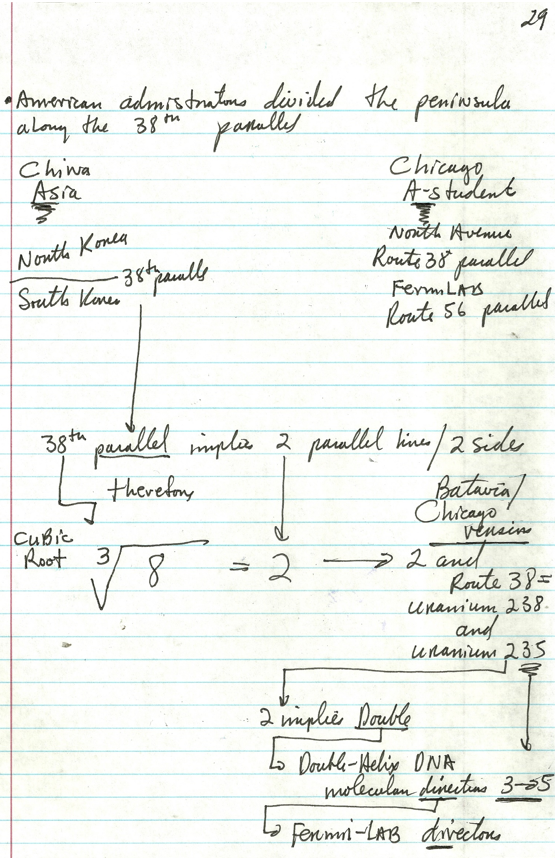 29
• American admistrators divided the peninsula
along the 38th parallel
China
Asia
Chicago
A-student
North Korea
38th paralle
South Korea
North Avenue
Route 38 parallel
FermiLAB
Route 56 parallel
38th parallel implies 2 parallel lines/2 sides
therefore
Batavia/
Chicago
version
Cubic
Root 3√8 = 2 → 2 and
Route 38 =
uranium 238
and
uranium 235
2 implies Double
Double-Helix DNA
molecular directions 3→5
Fermi-LAB directors